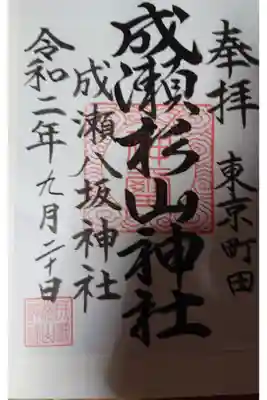 奉拝
東京町田
成瀬杉山神社
成瀬八坂神社
令和二年九月二十日